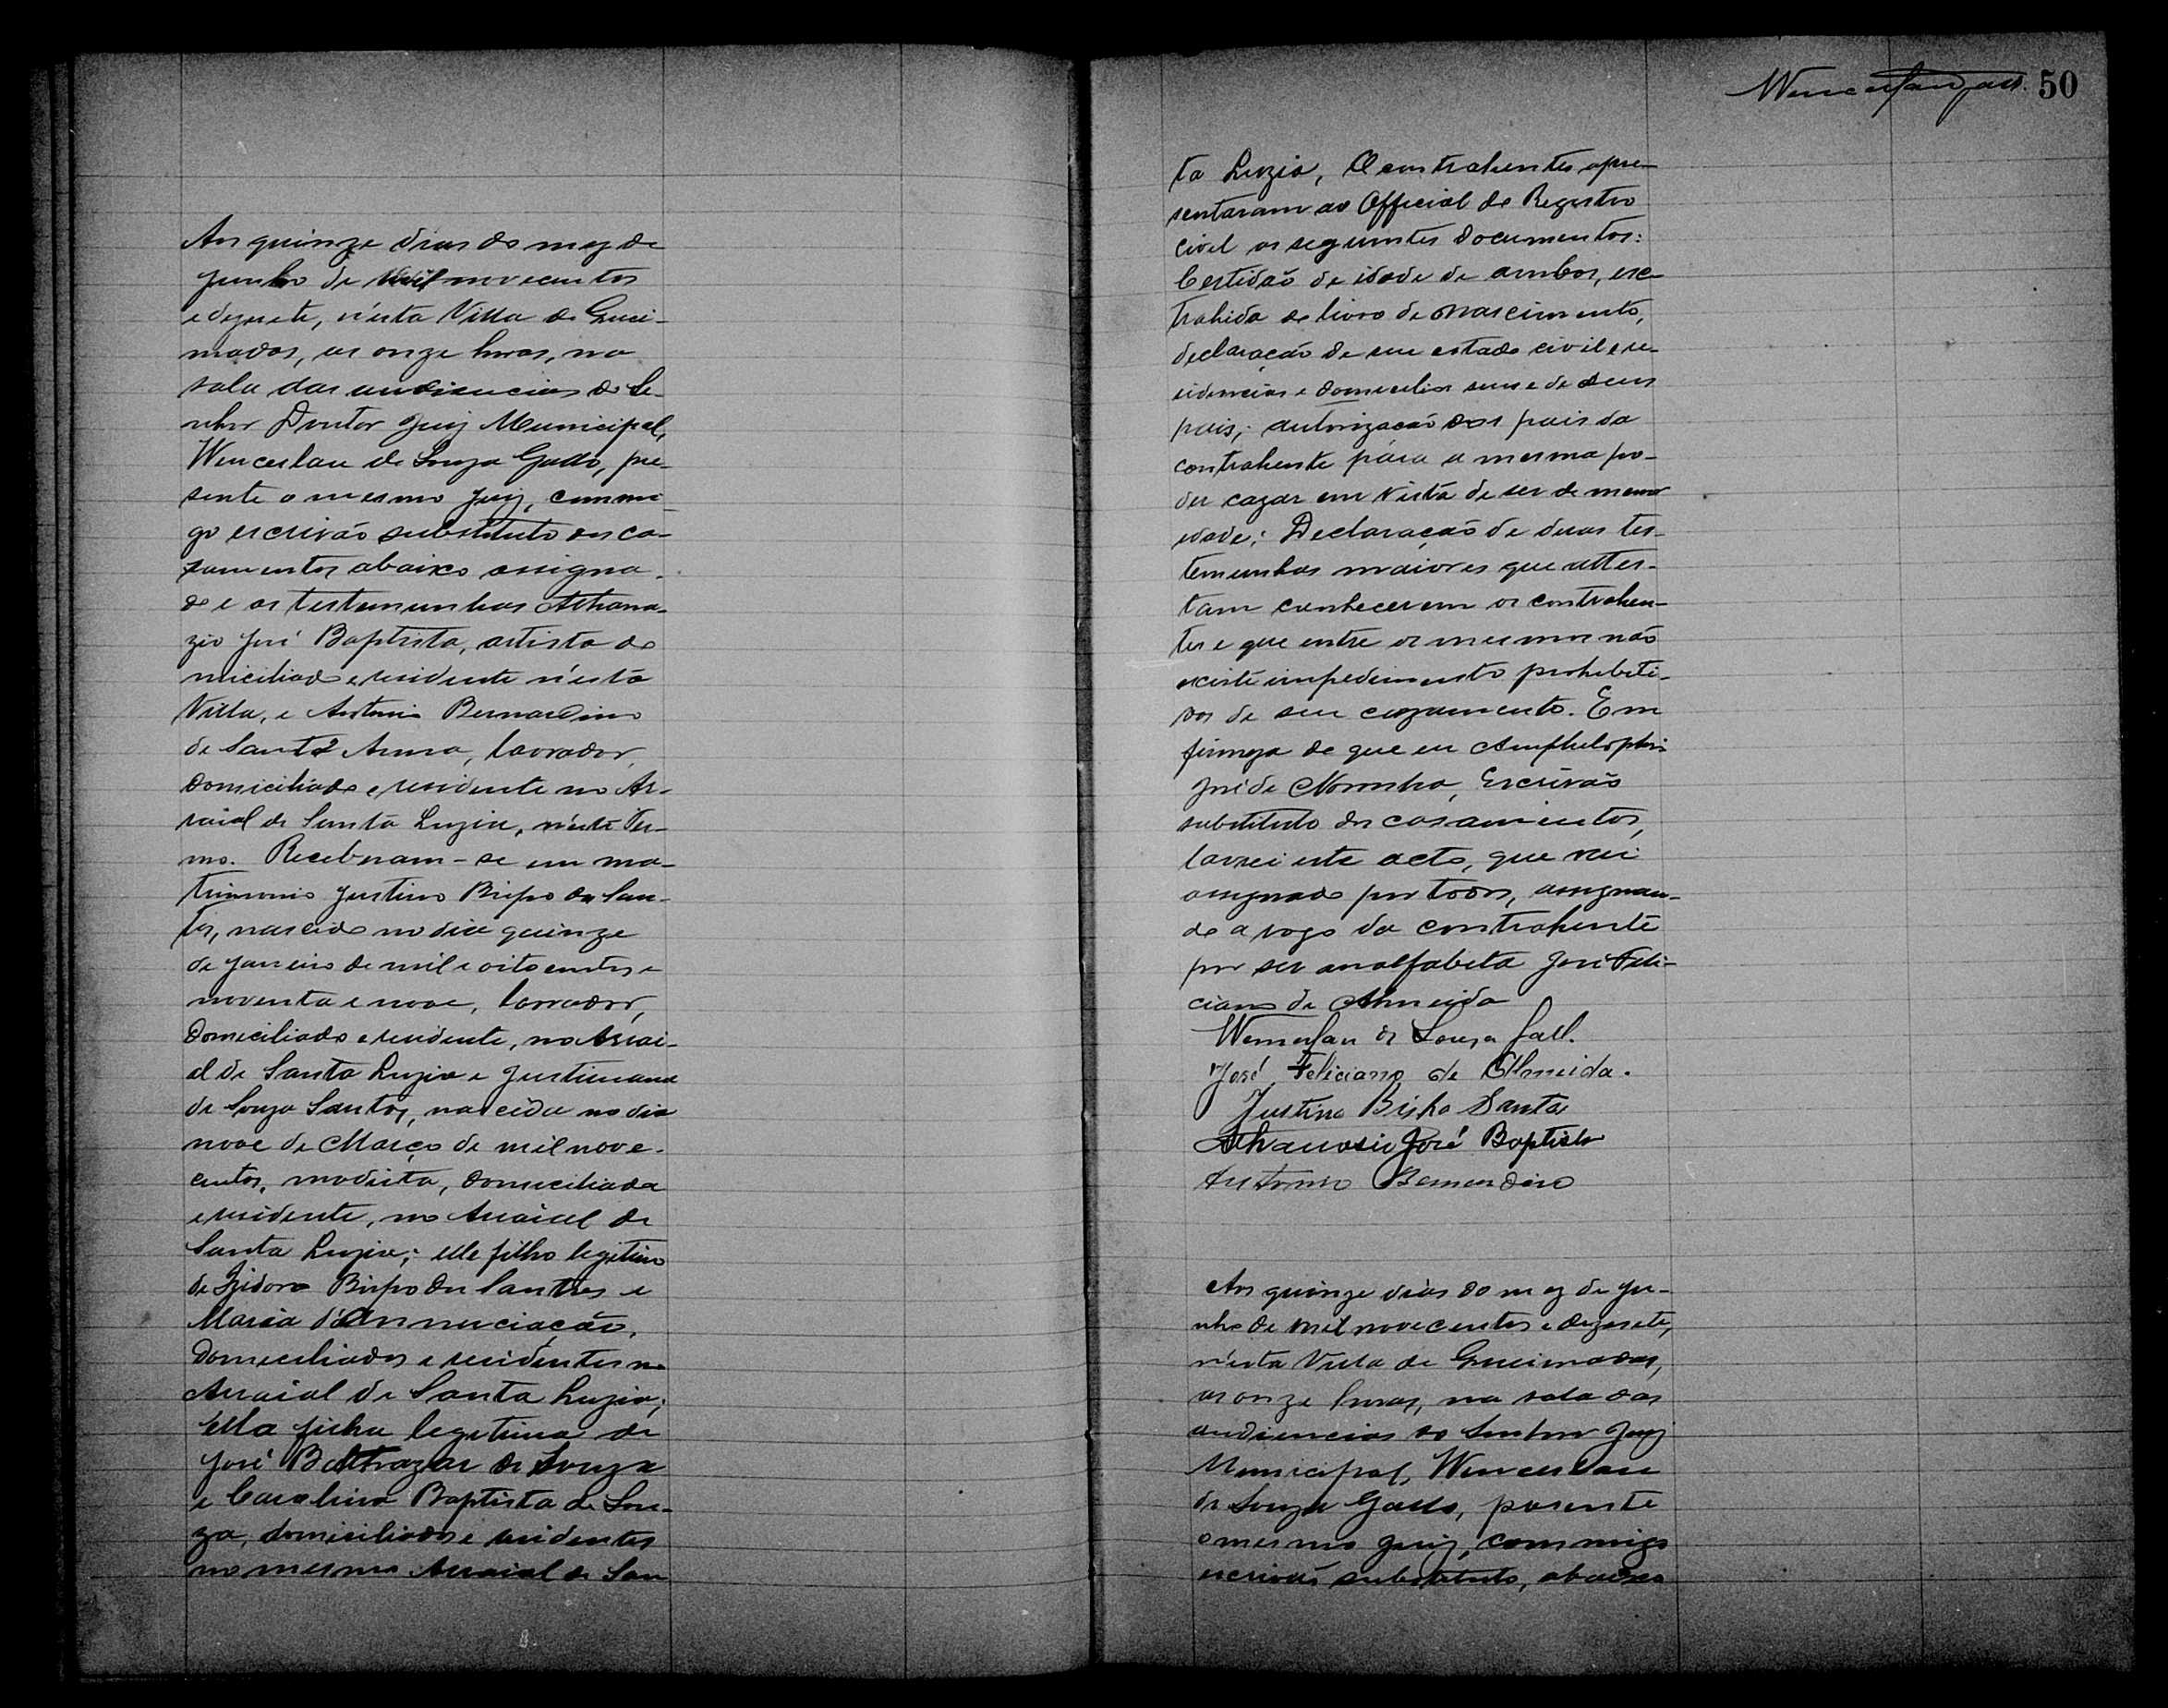 Aos quinze dias do mez de
Junho de mil novecentos
e dezesete, n'esta Villa de Quei-
madas, as onze horas, na
sala das audiencias do Se-
nhor Doutor Juiz Municipal,
Wenceslau de Souza Gallo, pre-
sente o mesmo Juiz, commi-
go escrivão substituto dos ca-
samentos abaixo assigna-
do e as testemunhas Athana-
zio José Baptista, artista do
miciliado e residente n'esta
Villa, e Antonio Bernardino
de Sant'Anna, lavrador,
domiciliado e residente no Ar-
raial de Santa Luzia, n'este Ter-
mo. Receberam-se em ma-
trimonio Justino Bispo dos San-
tos, nascido no dia quinze
de Janeiro de mil e oitocentos e
noventa e nove, lavrador,
domiciliado e residente, no Arrai-
al de Santa Luzia e Justiniana
de Souza Santos, nascida no dia
nove de Março de mil nove-
centos, modista, domiciliada
e residente, no Arraial de
Santa Luzia; elle filho legitimo
de Izidoro Bispo dos Santos e
Maria d'Annunciação,
domiciliados e residentes no
Arraial de Santa Luzia;
Ella filha legitima de
José Balthazar de Souza
e Carolina Baptista de Sou-
za, domiciliados e residentes
no mesmo Arraial de San
50
ta Luzia, O contrahentes apre-
sentaram ao Official do Registro
Civil os seguintes documentos:
Certidão de idade de ambos, ex-
trahida do livro de nascimento,
declaração de seu estado civil e re-
sidencias e domicilios seus e de seus
pais; autorização dos pais da
contrahente para a mesma po-
der cazar em vista de ser de menor
idade; Declaração de duas tes-
temunhas maiores que attes-
tam conhecerem os contrahen-
tes e que entre os mesmos não
existe impedimento prohibiti-
vos de seu cazamento. Em
firmeza do que eu Amphilophio
José de Noronha, Escrivão
substituto dos casamentos,
lavrei este acto, que vai
assignado por todos, assignan-
do a rogo da contrahente
por ser analfabeta José Feli-
ciano de Almeida
Wenceslau de Souza Gall.
José Feliciano de Almeida.
Justino Bispo Santos
Athanasio José Baptista
Antonio Bernardino
Aos quinze dias do mez de Ju-
nho de mil novecentos e dezesete,
n'esta Villa de Queimadas,
as onze horas, na sala das
audiencias do Senhor Juiz
Municipal, Wenceslau
de Souza Gallo, presente
o mesmo Juiz, commigo
escrivão substituto, abaixo